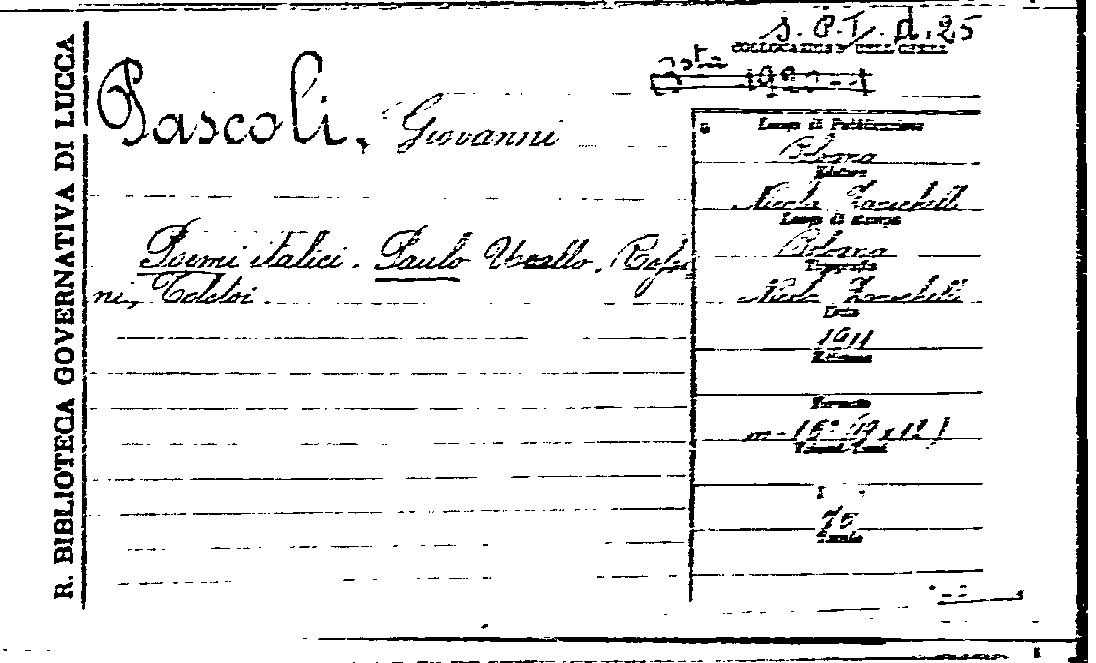 R. BIBLIOTECA GOVERNATIVA DI LUCCA
S. P. T. d. 25
COLLOCAZIONE DELL'OPERA
Pascoli, Giovanni
Poemi italici. Paulo Ucello. Rossi
ni, Tolstoi.
Luogo di Pubblicazione
Bologna
Editore
Nicola Zanichelli
Luogo di stampa
Bologna
Tipografia
Nicola Zanichelli
Data
1911
Edizione
Formato
in-16° (19 x 12)
Volumi Tomi
75